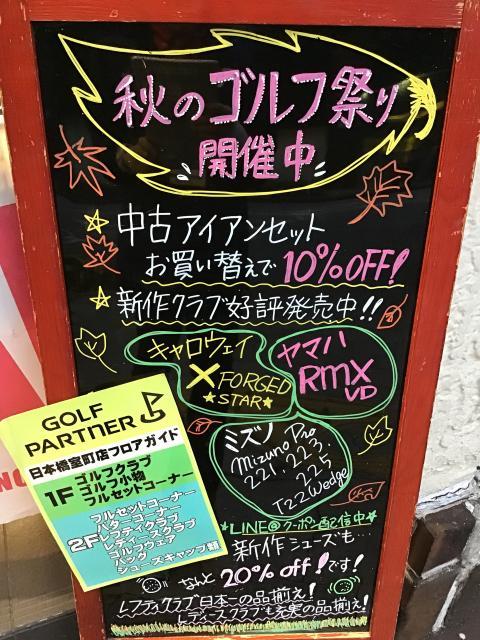 秋のゴルフ祭り
開催中
中古アイアンセット
お買い替えで10%OFF!
新作クラブ好評発売中!!
キャロウェイ
X FORGED
★STAR★
ヤマハ
RMX
VD
ミズノ
Mizuno Pro
221. 223.
225
T22 Wedge
★LINE@クーポン配信中★
新作シューズも…
なんと20%off!です!
レフティクラブ日本一の品揃え!
レディースクラブも充実の品揃え!
GOLF
PARTNER
日本橋室町店フロアガイド
1F
ゴルフクラブ
ゴルフ小物
フルセットコーナー
2F
フルセットコーナー
パターコーナー
レフティクラブ
レディースクラブ
ゴルフウェア
バッグ
シューズキャップ類